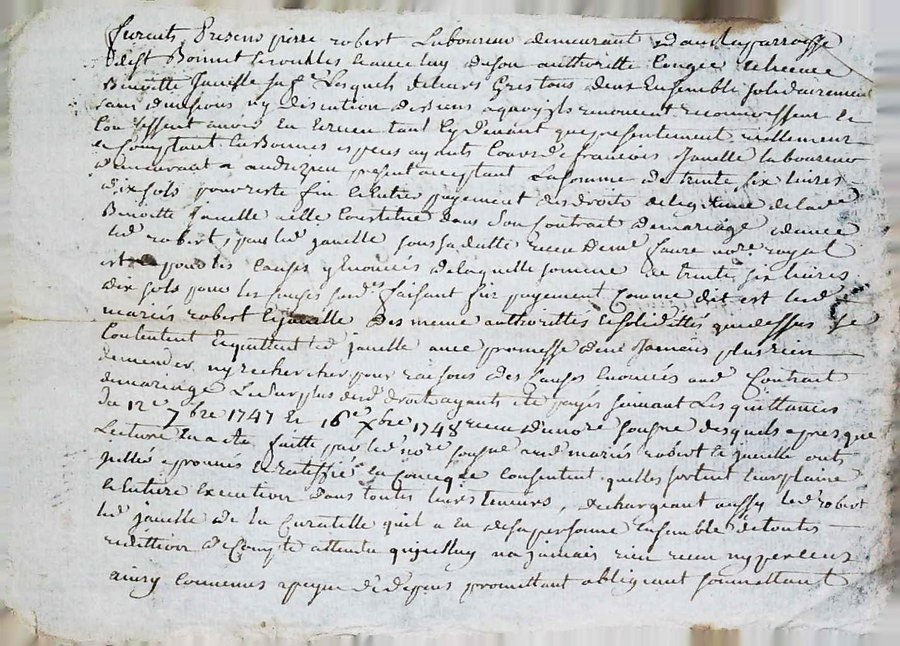 furent Presens pierre robert Laboureur demeurant dans la parroisse
de st Bonnet les oulles le avec luy de son authorité Congée et licence
Benoitte Janille sa fe Lesquels de leurs Gres tous deux Ensemble solidairement
sans division ny discution de biens a quoy ils renoncent reconnoissent et
Confessent avoir Eu et receu tant cydevant que presentement reellement
et Comptant En Bonnes especes ayants Cours de francois Janille laboureur
demeurant a andrezieu present acceptant La somme de trente six livres
dix sols pour reste fin et entier payement des droits de legitime de lade
Benoitte Janille a elle Constitué dans son Contrat de mariage avec
led robert, par led janille receu de me faure nore royal
est pour les Causes y Enoncés de laquelle somme de trente six livres
dix sols pour les Causes susd faisant fin payement Comme dit est lesd
mariés robert et janille des meme authorittés et solidittés que dessus se
Contentent et quittent led janille avec promesse de ne jamais plus rien
demender, ny rechercher pour raisons des Causes Enoncés aud Contrait
de mariage Le surplus desd droits ayants ete payés suivant Les quittances
du 12e 7bre 1747 et 16e xbre 1748 receu du nore sousigné desquels apres que
Lecture En a ete faitte par led nore sousigné ausd mariés robert et janille ont
icelles aprouvés et ratiffié En Consequence Consentent quelles sortent leur plaine
et Entiere Execution dans toutes leurs teneurs, dechargeant aussy led robert
led janille de la Curatelle qu'il a Eu de sa personne Ensemble de toutes
reddition de Compte attendu qu'icelluy na jamais rien receu ny perceu
ainsy Convenus a peyne de depens promettant obligeant soumettant